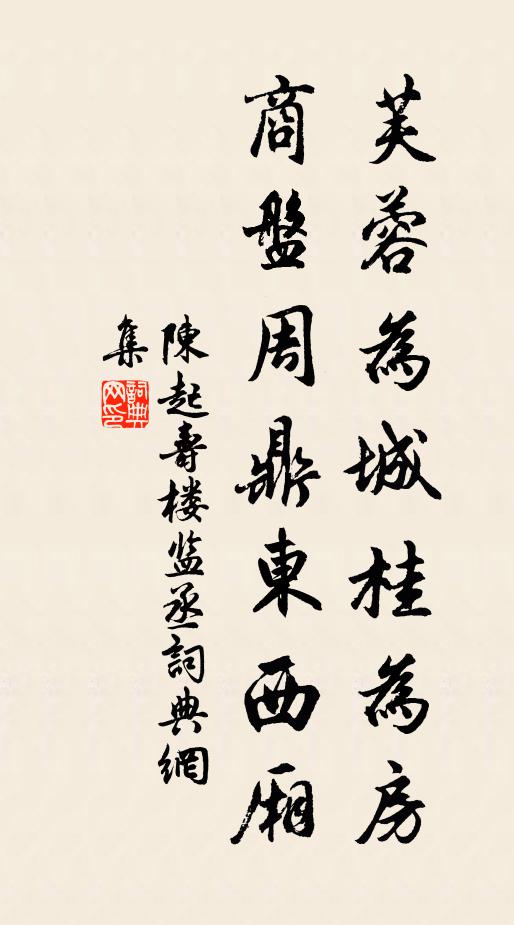 芙蓉為城桂為房
商盤周鼎東西廂
陳起壽楼监丞詞典網
集
詞典
网印